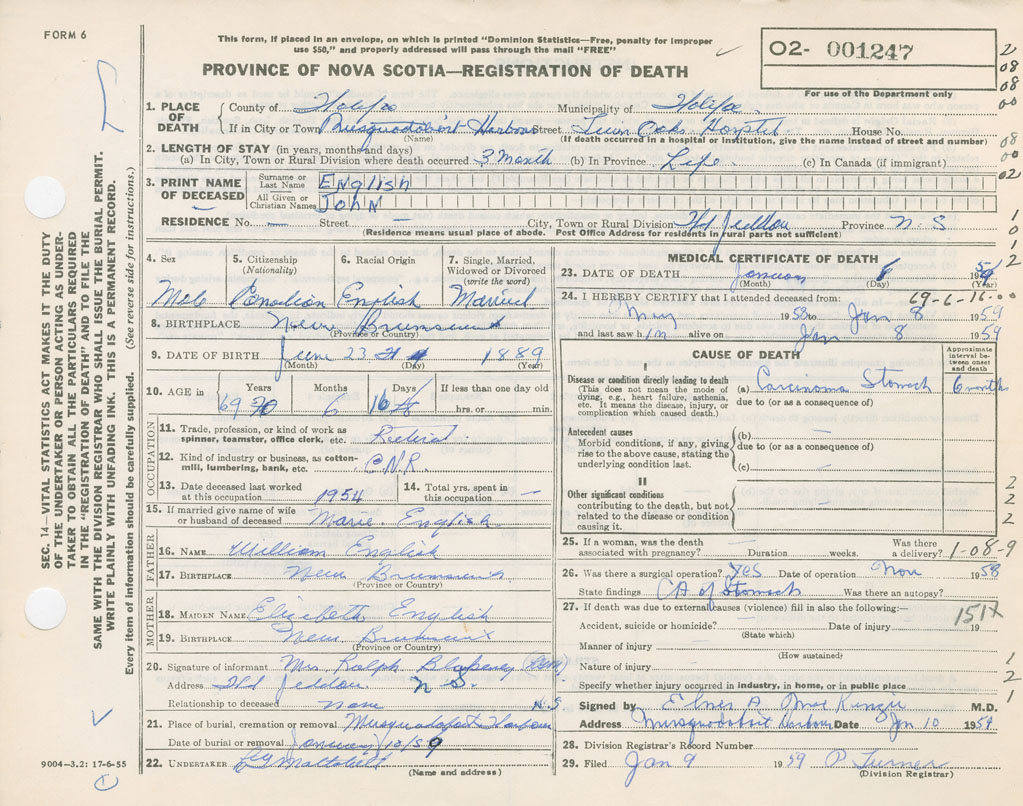 FORM 6
This form, if placed in an envelope, on which is printed "Dominion Statistics—Free, penalty for improper
use $50," and properly addressed will pass through the mail "FREE"
O2- 001247
For use of the Department only
PROVINCE OF NOVA SCOTIA—REGISTRATION OF DEATH
1. PLACE OF DEATH
County of Halifax Municipality of Halifax
If in City or Town Musquodoboit Harbour Street Twin Oaks Hospital House No.
(Name) (If death occurred in a hospital or institution, give the name instead of street and number)
2. LENGTH OF STAY (in years, months and days)
(a) In City, Town or Rural Division where death occurred 3 Month (b) In Province Life. (c) In Canada (if immigrant)
3. PRINT NAME OF DECEASED
Surname or Last Name ENglisH
All Given or Christian Names JOHN
RESIDENCE No. — Street — City, Town or Rural Division Hd Jeddou Province N. S
(Residence means usual place of abode. Post Office Address for residents in rural parts not sufficient)
4. Sex
Male
5. Citizenship (Nationality)
Canadian
6. Racial Origin
English
7. Single, Married, Widowed or Divorced (write the word)
Married
8. BIRTHPLACE New Brunswick
(Province or Country)
9. DATE OF BIRTH June 23 1889
(Month) (Day) (Year)
10. AGE in
Years Months Days If less than one day old
69 6 16 hrs. or min.
OCCUPATION
11. Trade, profession, or kind of work as spinner, teamster, office clerk, etc. Retired.
12. Kind of industry or business, as cotton-mill, lumbering, bank, etc. C.N.R.
13. Date deceased last worked at this occupation 1954
14. Total yrs. spent in this occupation —
15. If married give name of wife or husband of deceased Marie. English
FATHER
16. NAME William English
17. BIRTHPLACE New Brunswick
(Province or Country)
MOTHER
18. MAIDEN NAME Elizabeth English
19. BIRTHPLACE New Brunswick
(Province or Country)
20. Signature of informant Mrs. Ralph
Address Hd Jeddou. N S.
Relationship to deceased none N.S
21. Place of burial, cremation or removal Musquodoboit Harbour
Date of burial or removal January 10/59
22. UNDERTAKER
(Name and address)
9004-3.2: 17-6-55
MEDICAL CERTIFICATE OF DEATH
23. DATE OF DEATH January 8 1959
(Month) (Day) (Year)
24. I HEREBY CERTIFY that I attended deceased from: 69-6-16-00
May 1958 to Jan 8 1959
and last saw him alive on Jan 8 1959
CAUSE OF DEATH
Approximate interval between onset and death
I
Disease or condition directly leading to death
(This does not mean the mode of dying, e.g., heart failure, asthenia, etc. It means the disease, injury, or complication which caused death.)
(a) Carcinoma Stomach 6 month
due to (or as a consequence of)
Antecedent causes
Morbid conditions, if any, giving rise to the above cause, stating the underlying condition last.
(b) —
due to (or as a consequence of)
(c) —
II
Other significant conditions
contributing to the death, but not related to the disease or condition causing it.
25. If a woman, was the death associated with pregnancy? — Duration weeks. Was there a delivery? 1-08-9
26. Was there a surgical operation? Yes Date of operation Nov 1958
State findings CA of Stomach Was there an autopsy?
27. If death was due to external causes (violence) fill in also the following:—
151X
Accident, suicide or homicide? Date of injury 19
(State which)
Manner of injury
(How sustained)
Nature of injury
Specify whether injury occurred in industry, in home, or in public place
Signed by M.D.
Address Musquodoboit Harbour Date Jan 10 1959
28. Division Registrar's Record Number
29. Filed Jan 9 1959 P Turner
(Division Registrar)
SEC. 14—VITAL STATISTICS ACT MAKES IT THE DUTY
OF THE UNDERTAKER OR PERSON ACTING AS UNDER-
TAKER TO OBTAIN ALL THE PARTICULARS REQUIRED
IN THE "REGISTRATION OF DEATH" AND TO FILE THE
SAME WITH THE DIVISION REGISTRAR WHO SHALL ISSUE THE BURIAL PERMIT.
WRITE PLAINLY WITH UNFADING INK. THIS IS A PERMANENT RECORD.
Every item of information should be carefully supplied. (See reverse side for instructions.)
2
08
08
00
08
00
02
1
0
1
2
2
2
2
1
2
1